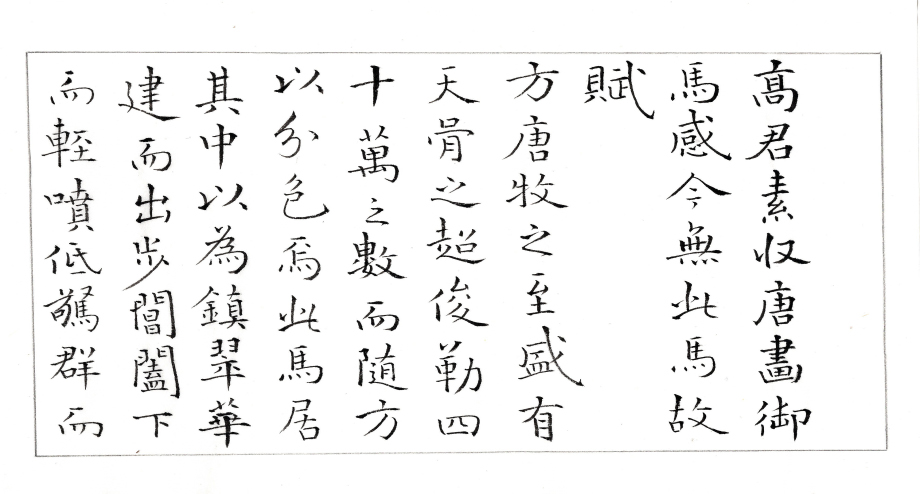 高君素収唐畫御
馬感今無此馬故
賦
方唐牧之至盛有
天骨之超俊勒四
十萬之數而随方
以分色焉此馬居
其中以為鎮翠華
建而出步閶闔下
而輕噴低驚群而